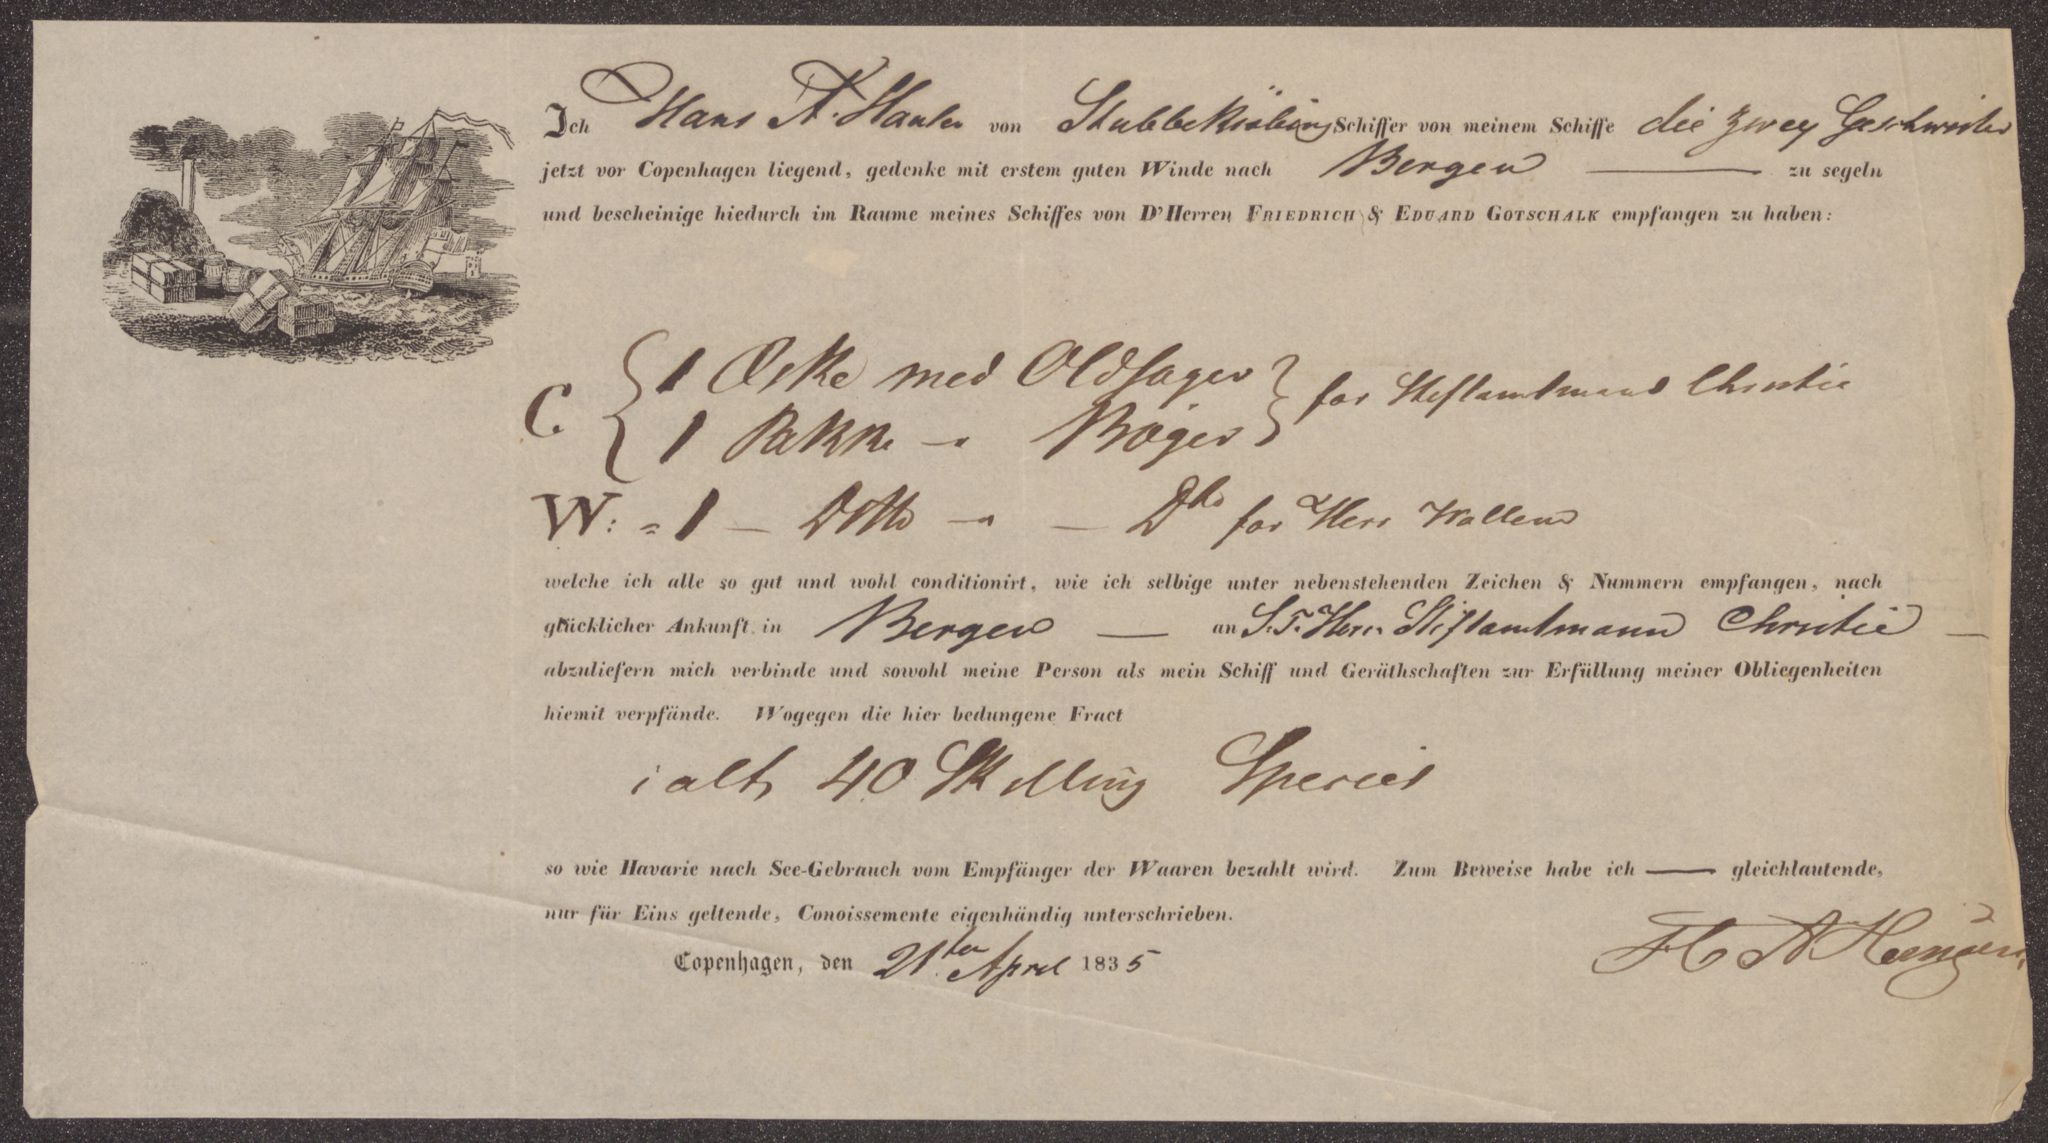 Ich Hans A. Hansen von Stubbekiöbing Schiffer von meinem Schiffe die zwey Geschwister
jetzt vor Copenhagen liegend, gedenke mit erstem guten Winde nach Bergen — zu segeln
und bescheinige hiedurch im Raume meines Schiffes von D' Herren FRIEDRICH & EDUARD GOTSCHALK empfangen zu haben:
C. { 1 Æske med Oldsager } for Stiftamtmand Christie
1 Pakke — " Bøger
W: = 1 — Ditto — " — Dto for Herr Wallem
welche ich alle so gut und wohl conditionirt, wie ich selbige unter nebenstehenden Zeichen & Nummern empfangen, nach
glücklicher Ankunft in Bergen — an S. T. Herr Stiftamtmann Christie —
abzuliefern mich verbinde und sowohl meine Person als mein Schiff und Geräthschaften zur Erfüllung meiner Obliegenheiten
hiemit verpfände. Wogegen die hier bedungene Fract
i alt 40 Skilling Species
so wie Havarie nach See-Gebrauch vom Empfänger der Waaren bezahlt wird. Zum Beweise habe ich — gleichlautende,
nur für Eins geltende, Conoissemente eigenhändig unterschrieben.
Copenhagen, den 21ten April 1835
H A